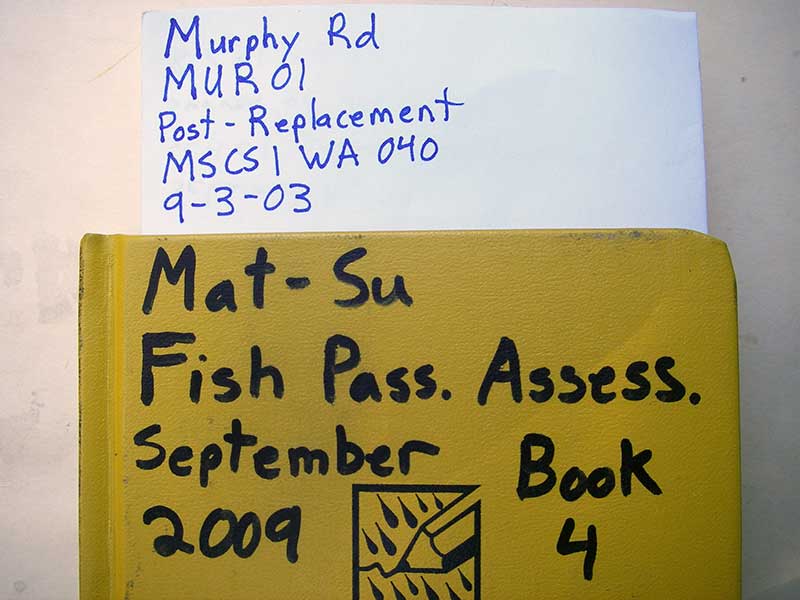 Murphy Rd
MUR01
Post-Replacement
MSCS1 WA 040
9-3-03
Mat-Su
Fish Pass. Assess.
September
2009
Book
4